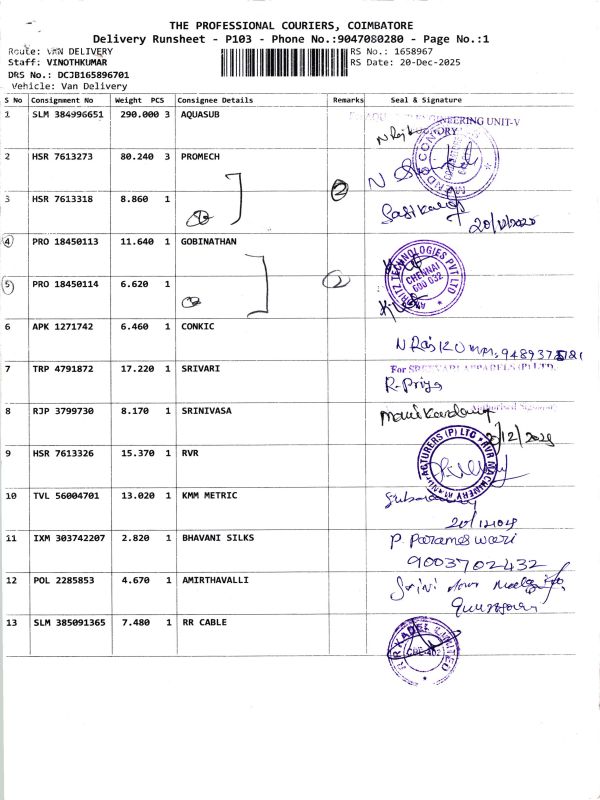 THE PROFESSIONAL COURIERS, COIMBATORE
Delivery Runsheet - P103 - Phone No.:9047080280 - Page No.:1
Route: VAN DELIVERY
RS No.: 1658967
Staff: VINOTHKUMAR
RS Date: 20-Dec-2025
DRS No.: DCJB165896701
Vehicle: Van Delivery
S No Consignment No Weight PCS Consignee Details Remarks Seal & Signature
1 SLM 384996651 290.000 3 AQUASUB
ENGINEERING UNIT-V
2 HSR 7613273 80.240 3 PROMECH
3 HSR 7613318 8.860 1
2
Sasikala
20/12/2025
4 PRO 18450113 11.640 1 GOBINATHAN
TECHNOLOGIES PVT LTD
CHENNAI
600 032
5 PRO 18450114 6.620 1
6 APK 1271742 6.460 1 CONKIC
7 TRP 4791872 17.220 1 SRIVARI
R. Priya
8 RJP 3799730 8.170 1 SRINIVASA
Manikandan
Authorised Signatory
20/12/2025
9 HSR 7613326 15.370 1 RVR
RVR MACHINERY MANUFACTURERS (P) LTD
10 TVL 56004701 13.020 1 KMM METRIC
11 IXM 303742207 2.820 1 BHAVANI SILKS
P. Parameswari
9003702432
12 POL 2285853 4.670 1 AMIRTHAVALLI
13 SLM 385091365 7.480 1 RR CABLE
LIMITED